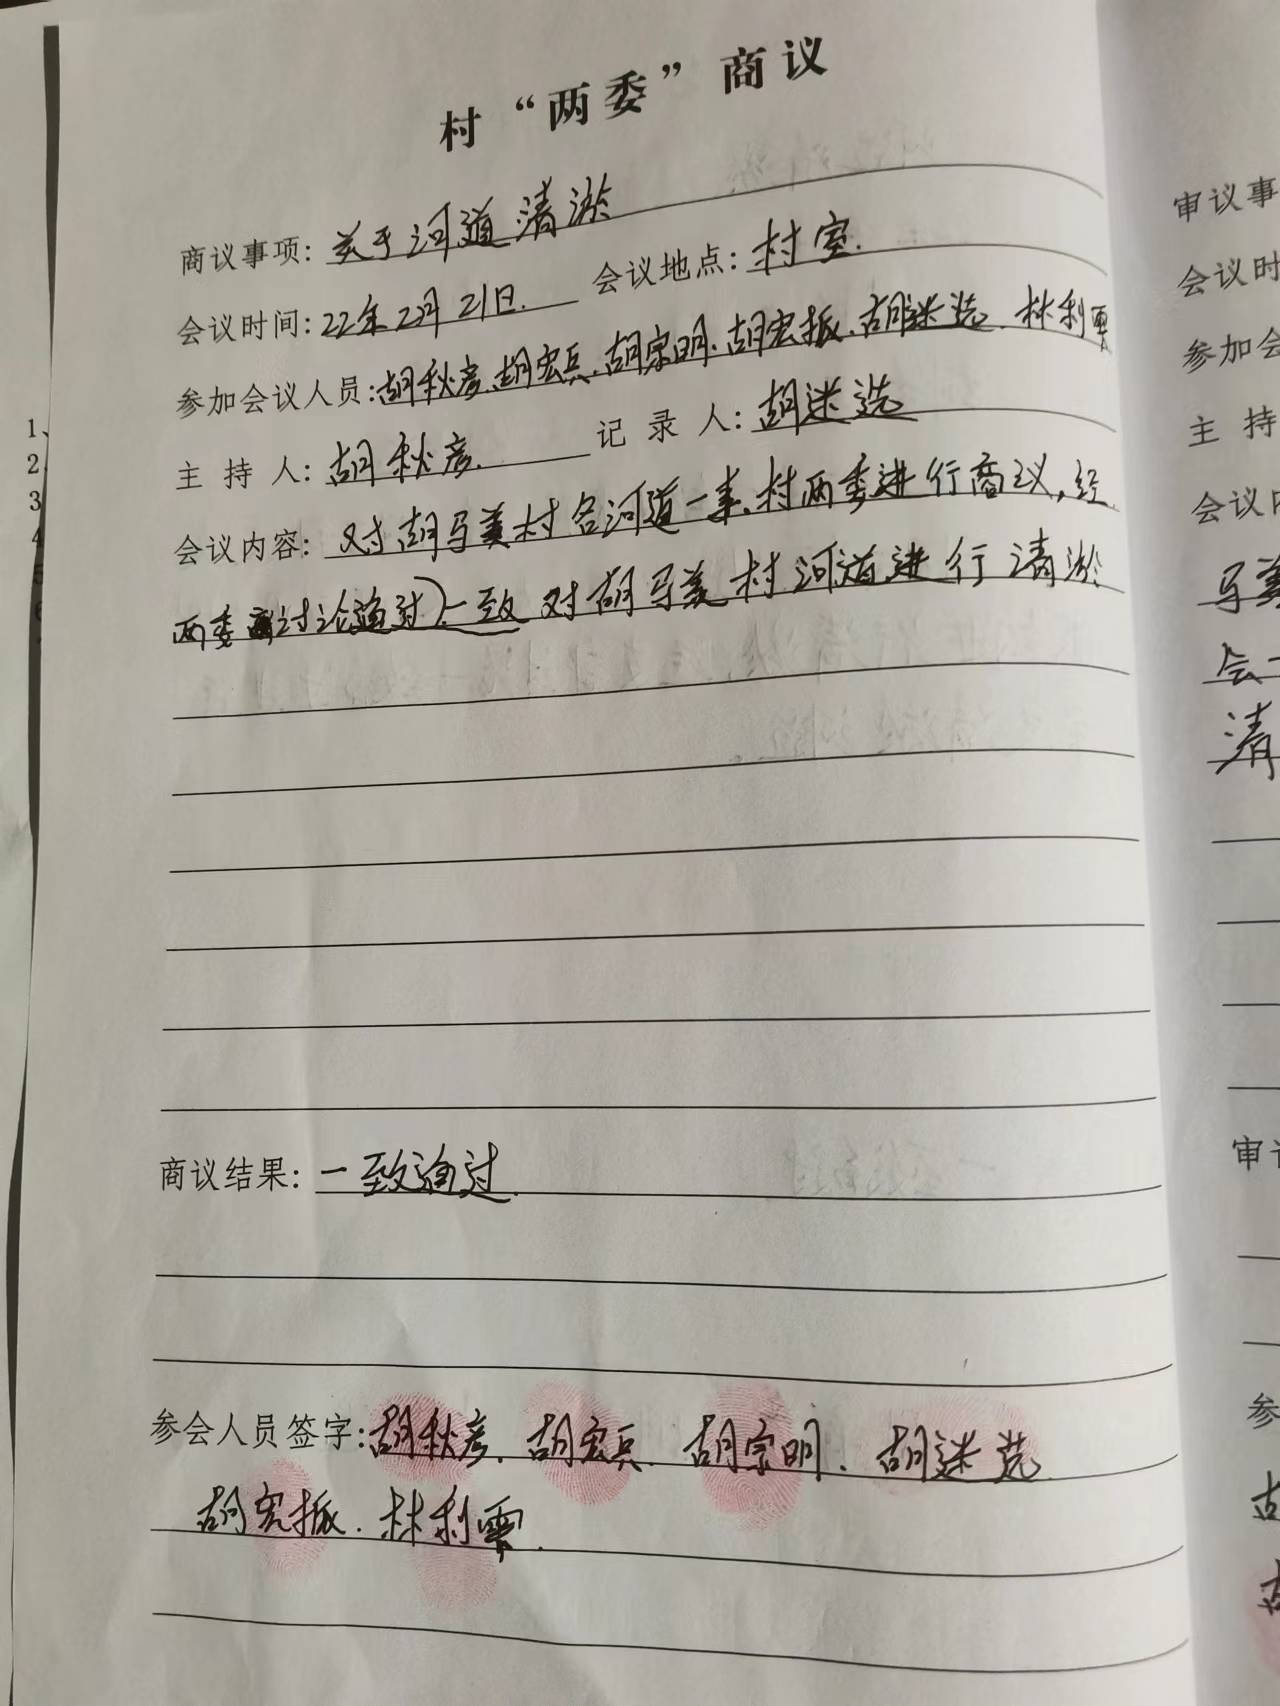 村“两委”商议
商议事项：关于河道清淤
会议时间：22年2月21日. 会议地点：村室.
参加会议人员：胡秋彦.胡宏兵.胡宗明.胡宏振.胡迷选.林利
主 持 人：胡秋彦. 记 录 人：胡迷选
会议内容：对胡马美村各河道一事.村两委进行商议，经
两委 讨论通过）.一致对胡马美村河道进行清淤
商议结果：一致通过.
参会人员签字：胡秋彦.胡宏兵.胡宗明.胡迷选
胡宏振.林利
1、
2
3
4
审议事
会议时
参加会
主 持
会议内
马美
会一
清
审议
参